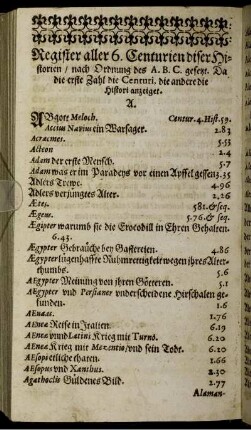 Register aller 6. Centurien diser Hi-
storien / nach Ordnung des A. B. C. gesetzt. Da
die erste Zahl die Centuri. die andere die
Histori anzeiget.
A.
ABgott Meloch. Centur. 4. Hist. 59.
Accius Navius ein Warsager. 2.83
Acteon 2.4
Adam der erste Mensch. 5.7
Adam was er im Paradeys vor einen Apffel gessen 3.35
Adlers Trewe. 4.96
Adlers verjüngtes Alter. 2.26
Æetes. 581. & seq.
Ægeus. 5.76. & seq.
Ægipter warumb sie die Crocodill in Ehren Gehalten.
6.43.
Ægypter Gebräuche bey Gastereien. 4.86
Ægypter lügenhaffte Ruhmreitigkeit wegen ihres Alter-
thumbs. 5.6
Ægypter Meinung von ihren Götteren. 5.1
Ægypter und Persianer underscheidene Hirschalen ge-
funden. 1.6
Æneas. 1.76
Æneæ Reise in Italien. 6.19
Æneæ und Latini Krieg mit Turno. 6.20
Æneæ Krieg mit Mezentio/ und sein Todt. 6.20
Æsopi etliche thaten. 1.66
Æsopus und Xanthus. 2.30
Agathoclis Güldenes Bild. 2.77
Alaman-